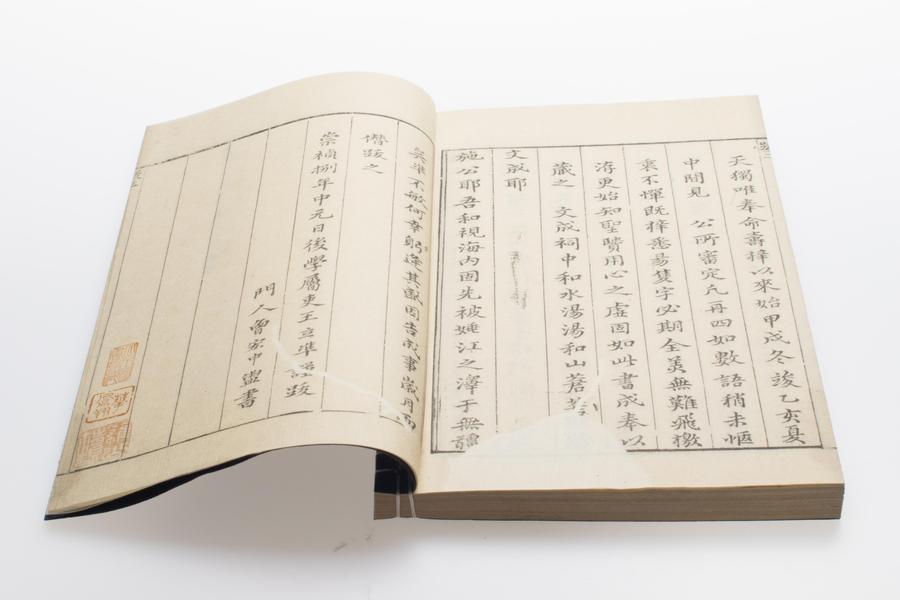 天獨唯奉命壽擇以來始甲戌冬竣乙亥夏
中間見 公所審定凡再四如數語稍未愜
衷不憚既擇悉易隻字必期全美無難飛檄
游更始知聖賢用心之虛固如此書成奉以
藏之 文成祠中和水湯湯和山蒼
文成耶
施公耶吾和視海內固先被姚江之澤于無
吳準不敏何幸躬逢其盛因告成事歲月而
僭跋之
崇禎捌年中元日後學屬吏王立準謹跋
門人曾宏中盥書